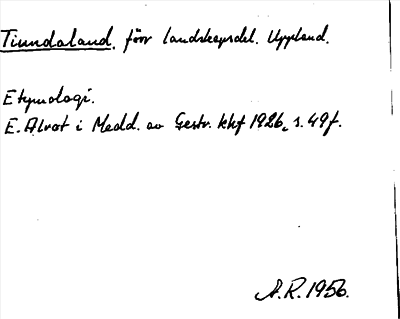 Tiundaland, förr landskapsdel. Uppland.
Etymologi.
E. Alrot i Medd. av Gestr. khf 1926, s. 49 f.
A.R. 1956.